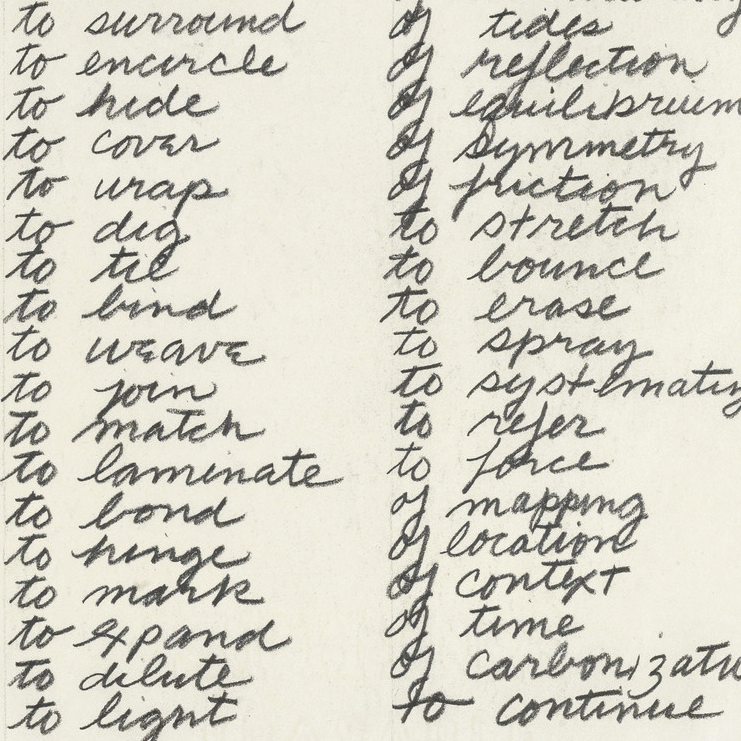 to surround
to encircle
to hide
to cover
to wrap
to dig
to tie
to bind
to weave
to join
to match
to laminate
to bond
to hinge
to mark
to expand
to dilute
to light
of tides
of reflection
of equilibrium
of symmetry
of friction
to stretch
to bounce
to erase
to spray
to
to refer
to force
of mapping
of location
of context
of time
of
to continue